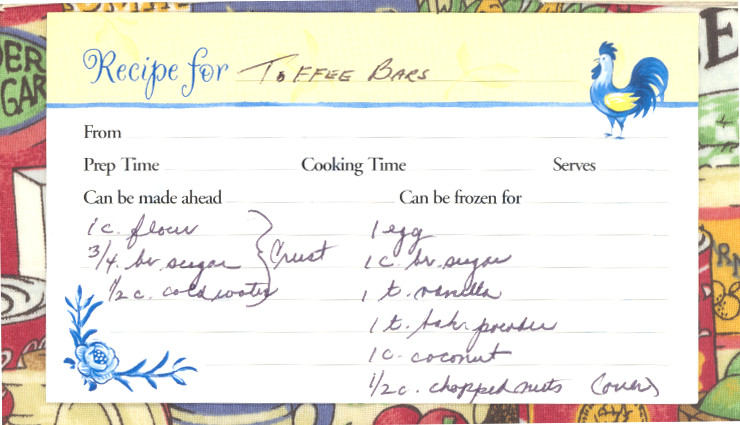 Recipe for TOFFEE BARS
From
Prep Time Cooking Time Serves
Can be made ahead Can be frozen for
1 c. flour
3/4. br. sugar
1/2 c. cold water
Crust
1 egg
1 c. br. sugar
1 t. vanilla
1 t. bak. powder
1 c. coconut
1/2 c. chopped nuts (over)
DER
GAR
E